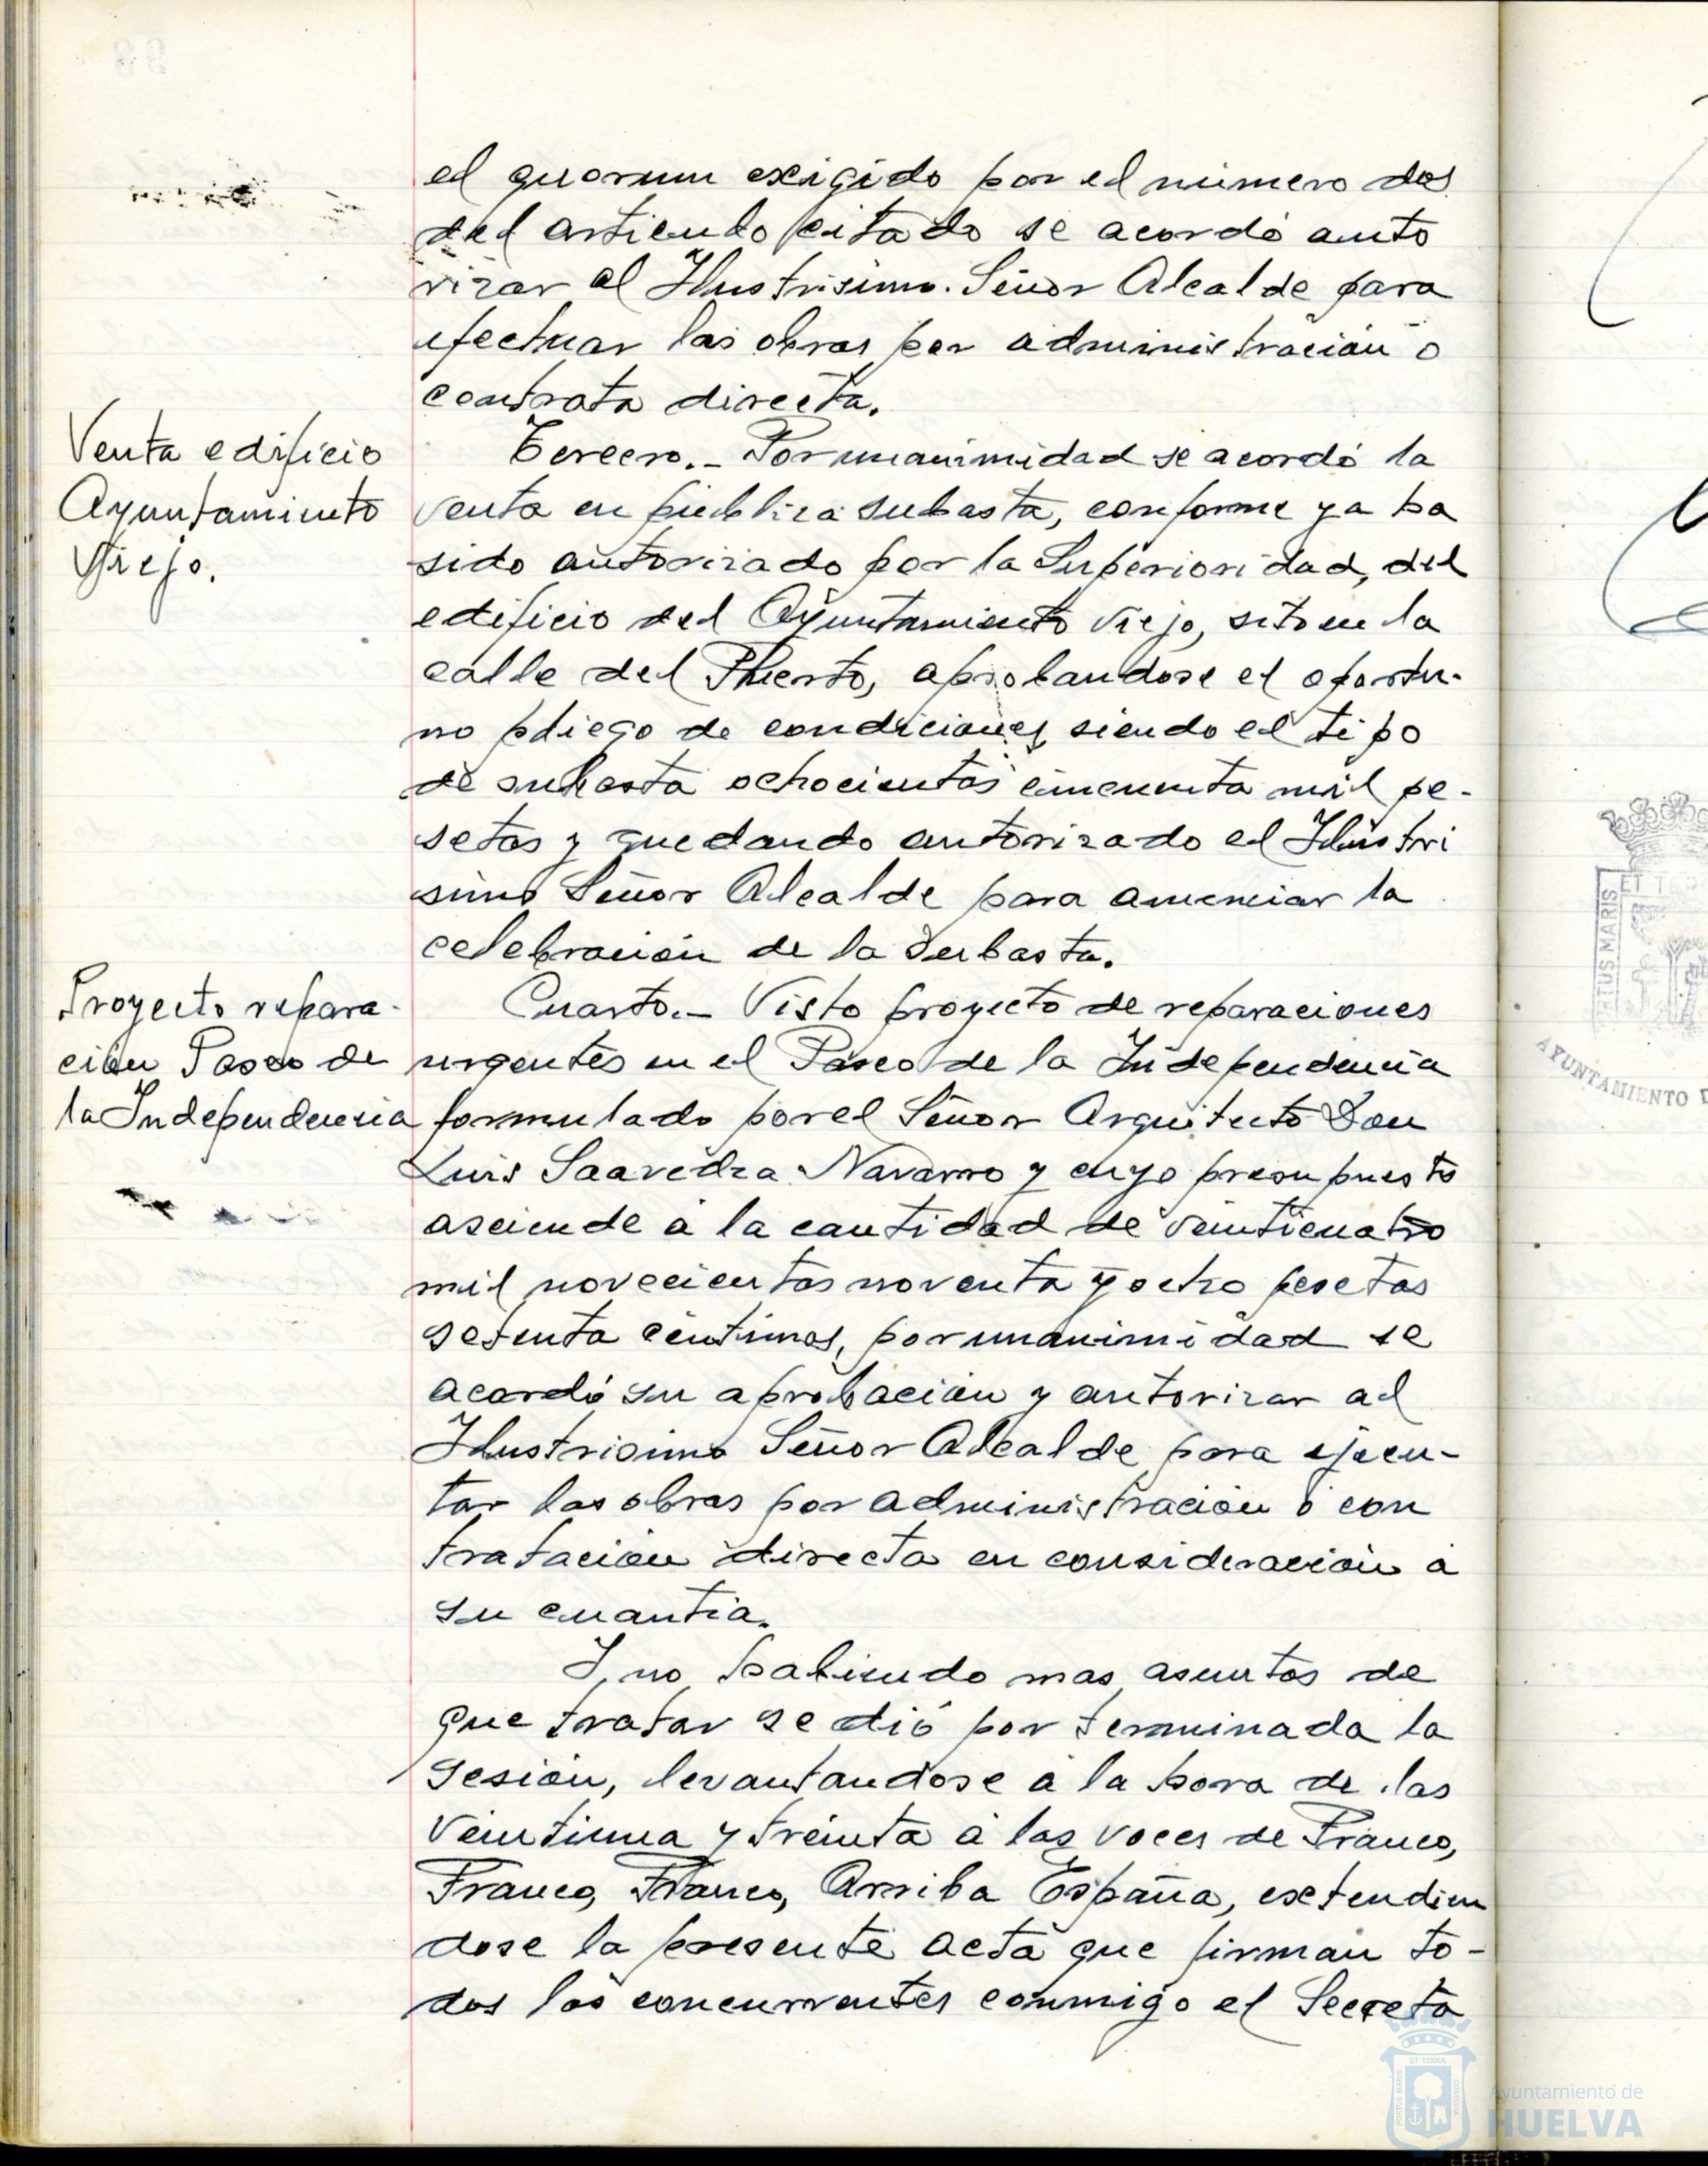 el quorum exigido por el número dos
del articulo citado se acordó auto
rizar al Ilustrisimo Señor Alcalde para
efectuar las obras por administración o
contrata directa.
Venta edificio
Ayuntamiento
Viejo.
Tercero.- Por unanimidad se acordó la
venta en pública subasta, conforme ya ha
sido autorizado por la Superioridad, del
edificio del Ayuntamiento Viejo, sito en la
calle del Puerto, aprobandose el oportu-
no pliego de condiciones, siendo el tipo
de subasta ochocientas cincuenta mil pe-
setas y quedando autorizado el Ilustri
simo Señor Alcalde para anunciar la
celebración de la subasta.
Proyecto repara-
ción Paseo de
la Independencia
Cuarto.- Visto proyecto de reparaciones
urgentes en el Paseo de la Independencia
formulado por el Señor Arquitecto Don
Luis Saavedra Navarro y cuyo presupuesto
asciende a la cantidad de veinticuatro
mil novecientas noventa y ocho pesetas
setenta céntimos, por unanimidad se
acordó su aprobación y autorizar al
Ilustrisimo Señor Alcalde para ejecu-
tar las obras por administración ó con
tratación directa en consideración a
su cuantia.
Y, no habiendo mas asuntos de
que tratar se dió por terminada la
sesión, levantandose a la hora de las
veintiuna y treinta a las voces de Franco,
Franco, Franco, Arriba España, extendien
dose la presente acta que firman to-
dos los concurrentes conmigo el Secreta
ET TER
RTUS MARIS
AYUNTAMIENTO D
Ayuntamiento de
HUELVA